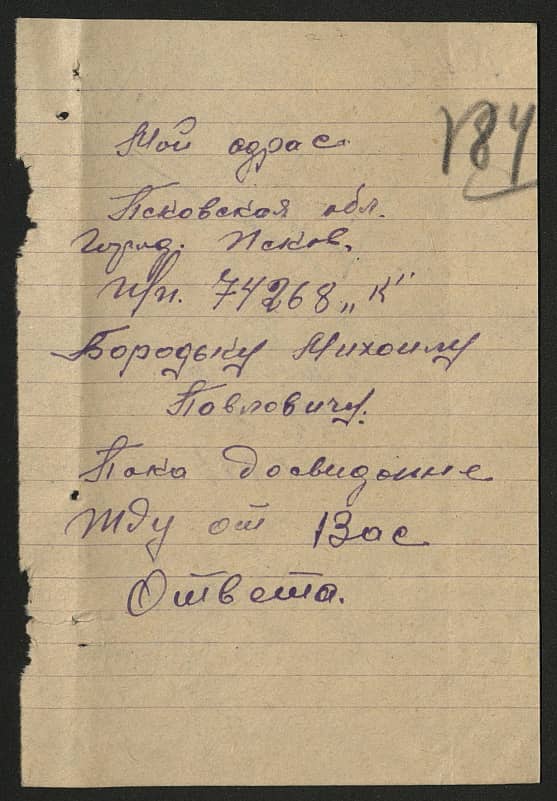 Мой адрас
784
Псковская обл.
Город. Псков.
П/п. 74268 „К"
Бородьку Михаилу
Павловичу.
Пока досвидание
Жду от Вас
Ответа.